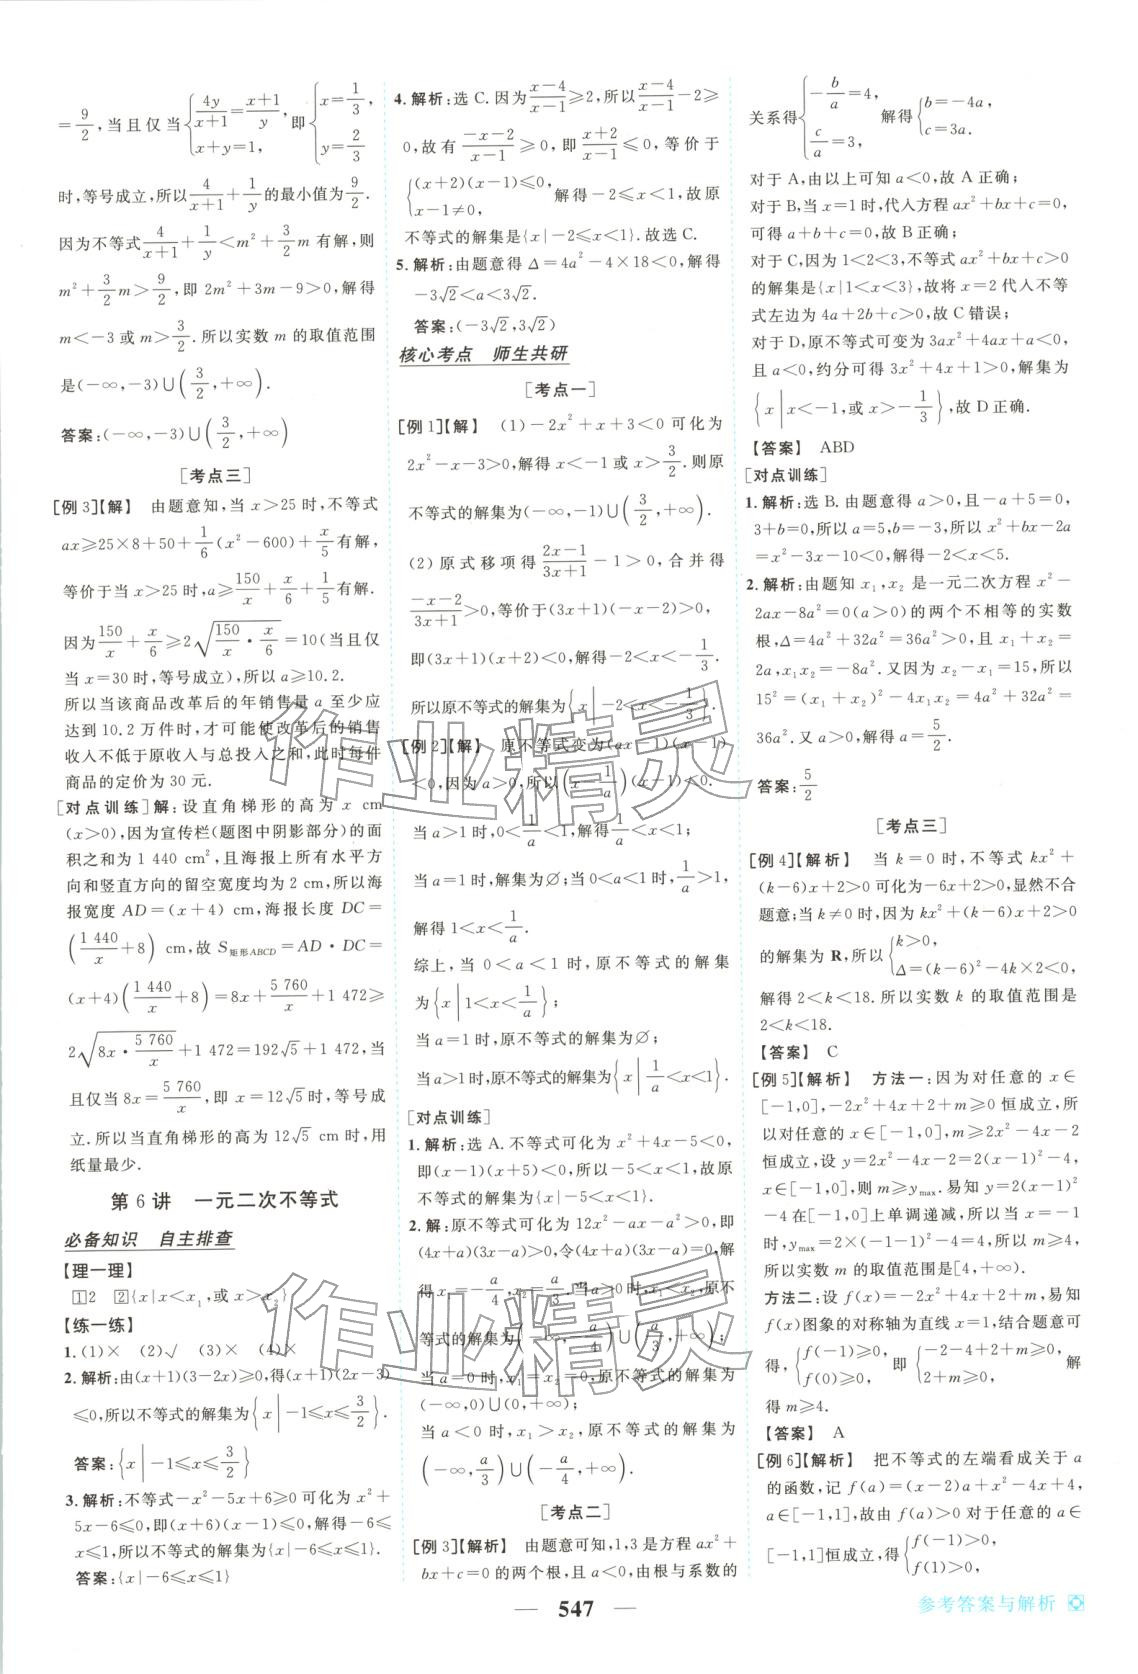 =9/2,当且仅当{4y/(x+1)=(x+1)/y, x+y=1,即{x=1/3, y=2/3
时,等号成立,所以4/(x+1)+1/y的最小值为9/2.
因为不等式4/(x+1)+1/y<m²+3/2m有解,则
m²+3/2m>9/2,即2m²+3m-9>0,解得
m<-3或m>3/2.所以实数m的取值范围
是(-∞,-3)∪(3/2,+∞).
答案:(-∞,-3)∪(3/2,+∞)
[考点三]
[例3]【解】 由题意知,当x>25时,不等式
ax≥25×8+50+1/6(x²-600)+x/5有解,
等价于当x>25时,a≥150/x+x/6+1/5有解.
因为150/x+x/6≥2√(150/x·x/6)=10(当且仅
当x=30时,等号成立),所以a≥10.2.
所以当该商品改革后的年销售量a至少应
达到10.2万件时,才可能使改革后的销售
收入不低于原收入与总投入之和,此时每件
商品的定价为30元.
[对点训练]解:设直角梯形的高为x cm
(x>0),因为宣传栏(题图中阴影部分)的面
积之和为1 440 cm²,且海报上所有水平方
向和竖直方向的留空宽度均为2 cm,所以海
报宽度AD=(x+4) cm,海报长度DC=
(1 440/x+8) cm,故S矩形ABCD=AD·DC=
(x+4)(1 440/x+8)=8x+5 760/x+1 472≥
2√(8x·5 760/x)+1 472=192√5+1 472,当
且仅当8x=5 760/x,即x=12√5时,等号成
立.所以当直角梯形的高为12√5 cm时,用
纸量最少.
第6讲 一元二次不等式
必备知识 自主排查
【理一理】
1 2 2 {x|x<x₁,或x>x₂}
【练一练】
1.(1)× (2)√ (3)× (4)×
2.解析:由(x+1)(3-2x)≥0,得(x+1)(2x-3)
≤0,所以不等式的解集为{x|-1≤x≤3/2}.
答案:{x|-1≤x≤3/2}
3.解析:不等式-x²-5x+6≥0可化为x²+
5x-6≤0,即(x+6)(x-1)≤0,解得-6≤
x≤1,所以不等式的解集为{x|-6≤x≤1}.
答案:{x|-6≤x≤1}
4.解析:选C.因为(x-4)/(x-1)≥2,所以(x-4)/(x-1)-2≥
0,故有(-x-2)/(x-1)≥0,即(x+2)/(x-1)≤0,等价于
{(x+2)(x-1)≤0, x-1≠0,解得-2≤x<1,故原
不等式的解集是{x|-2≤x<1}.故选C.
5.解析:由题意得Δ=4a²-4×18<0,解得
-3√2<a<3√2.
答案:(-3√2,3√2)
核心考点 师生共研
[考点一]
[例1]【解】 (1)-2x²+x+3<0可化为
2x²-x-3>0,解得x<-1或x>3/2.则原
不等式的解集为(-∞,-1)∪(3/2,+∞).
(2)原式移项得(2x-1)/(3x+1)-1>0,合并得
(-x-2)/(3x+1)>0,等价于(3x+1)(-x-2)>0,
即(3x+1)(x+2)<0,解得-2<x<-1/3.
所以原不等式的解集为{x|-2<x<-1/3}.
[例2]【解】 原不等式变为(ax-1)(x-1)
<0,因为a>0,所以(x-1/a)(x-1)<0.
当a>1时,0<1/a<1,解得1/a<x<1;
当a=1时,解集为∅;当0<a<1时,1/a>1,
解得1<x<1/a.
综上,当0<a<1时,原不等式的解集
为{x|1<x<1/a};
当a=1时,原不等式的解集为∅;
当a>1时,原不等式的解集为{x|1/a<x<1}.
[对点训练]
1.解析:选A.不等式可化为x²+4x-5<0,
即(x-1)(x+5)<0,所以-5<x<1,故原
不等式的解集为{x|-5<x<1}.
2.解:原不等式可化为12x²-ax-a²>0,即
(4x+a)(3x-a)>0,令(4x+a)(3x-a)=0,解
得x₁=-a/4,x₂=a/3.当a>0时,x₁<x₂,原不
等式的解集为(-∞,-a/4)∪(a/3,+∞);
当a=0时,x₁=x₂=0,原不等式的解集为
(-∞,0)∪(0,+∞);
当a<0时,x₁>x₂,原不等式的解集为
(-∞,a/3)∪(-a/4,+∞).
[考点二]
[例3]【解析】 由题意可知,1,3是方程ax²+
bx+c=0的两个根,且a<0,由根与系数的
关系得{-b/a=4, c/a=3,解得{b=-4a, c=3a.
对于A,由以上可知a<0,故A正确;
对于B,当x=1时,代入方程ax²+bx+c=0,
可得a+b+c=0,故B正确;
对于C,因为1<2<3,不等式ax²+bx+c>0
的解集是{x|1<x<3},故将x=2代入不等
式左边为4a+2b+c>0,故C错误;
对于D,原不等式可变为3ax²+4ax+a<0,
且a<0,约分可得3x²+4x+1>0,解集为
{x|x<-1,或x>-1/3},故D正确.
【答案】 ABD
[对点训练]
1.解析:选B.由题意得a>0,且-a+5=0,
3+b=0,所以a=5,b=-3,所以x²+bx-2a
=x²-3x-10<0,解得-2<x<5.
2.解析:由题知x₁,x₂是一元二次方程x²-
2ax-8a²=0(a>0)的两个不相等的实数
根,Δ=4a²+32a²=36a²>0,且x₁+x₂=
2a,x₁x₂=-8a².又因为x₂-x₁=15,所以
15²=(x₁+x₂)²-4x₁x₂=4a²+32a²=
36a².又a>0,解得a=5/2.
答案:5/2
[考点三]
[例4]【解析】 当k=0时,不等式kx²+
(k-6)x+2>0可化为-6x+2>0,显然不合
题意;当k≠0时,因为kx²+(k-6)x+2>0
的解集为R,所以{k>0, Δ=(k-6)²-4k×2<0,
解得2<k<18.所以实数k的取值范围是
2<k<18.
【答案】 C
[例5]【解析】 方法一:因为对任意的x∈
[-1,0],-2x²+4x+2+m≥0恒成立,所
以对任意的x∈[-1,0],m≥2x²-4x-2
恒成立,设y=2x²-4x-2=2(x-1)²-4,
x∈[-1,0],则m≥ymax.易知y=2(x-1)²
-4在[-1,0]上单调递减,所以当x=-1
时,ymax=2×(-1-1)²-4=4,所以m≥4,
所以实数m的取值范围是[4,+∞).
方法二:设f(x)=-2x²+4x+2+m,易知
f(x)图象的对称轴为直线x=1,结合题意可
得,{f(-1)≥0, f(0)≥0,即{-2-4+2+m≥0, 2+m≥0,解
得m≥4.
【答案】 A
[例6]【解析】 把不等式的左端看成关于a
的函数,记f(a)=(x-2)a+x²-4x+4,
a∈[-1,1],故由f(a)>0对于任意的a∈
[-1,1]恒成立,所以{f(-1)>0, f(1)>0,
547
参考答案与解析
作业精灵
作业精灵